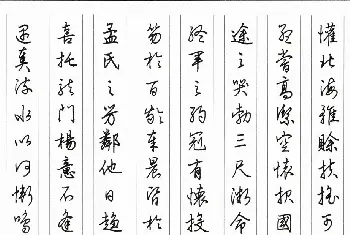 懽北海雖賒扶搖可
孟嘗高潔空懷報國
途之哭勃三尺微命
終軍之弱冠有懷投
笏於百齡奉晨昏於
孟氏之芳鄰他日趨
喜托龍門楊意不逢
遇奏流水以何慚鳴